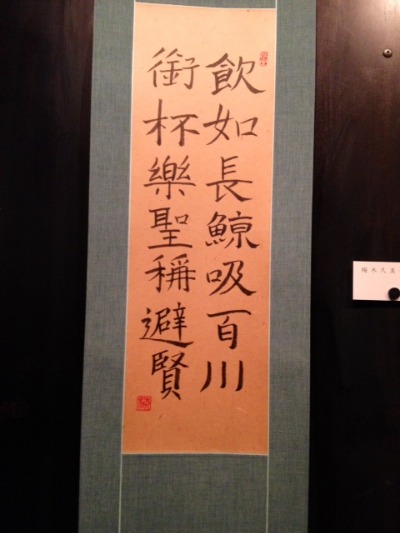 飲如長鯨吸百川
銜杯樂聖稱避賢